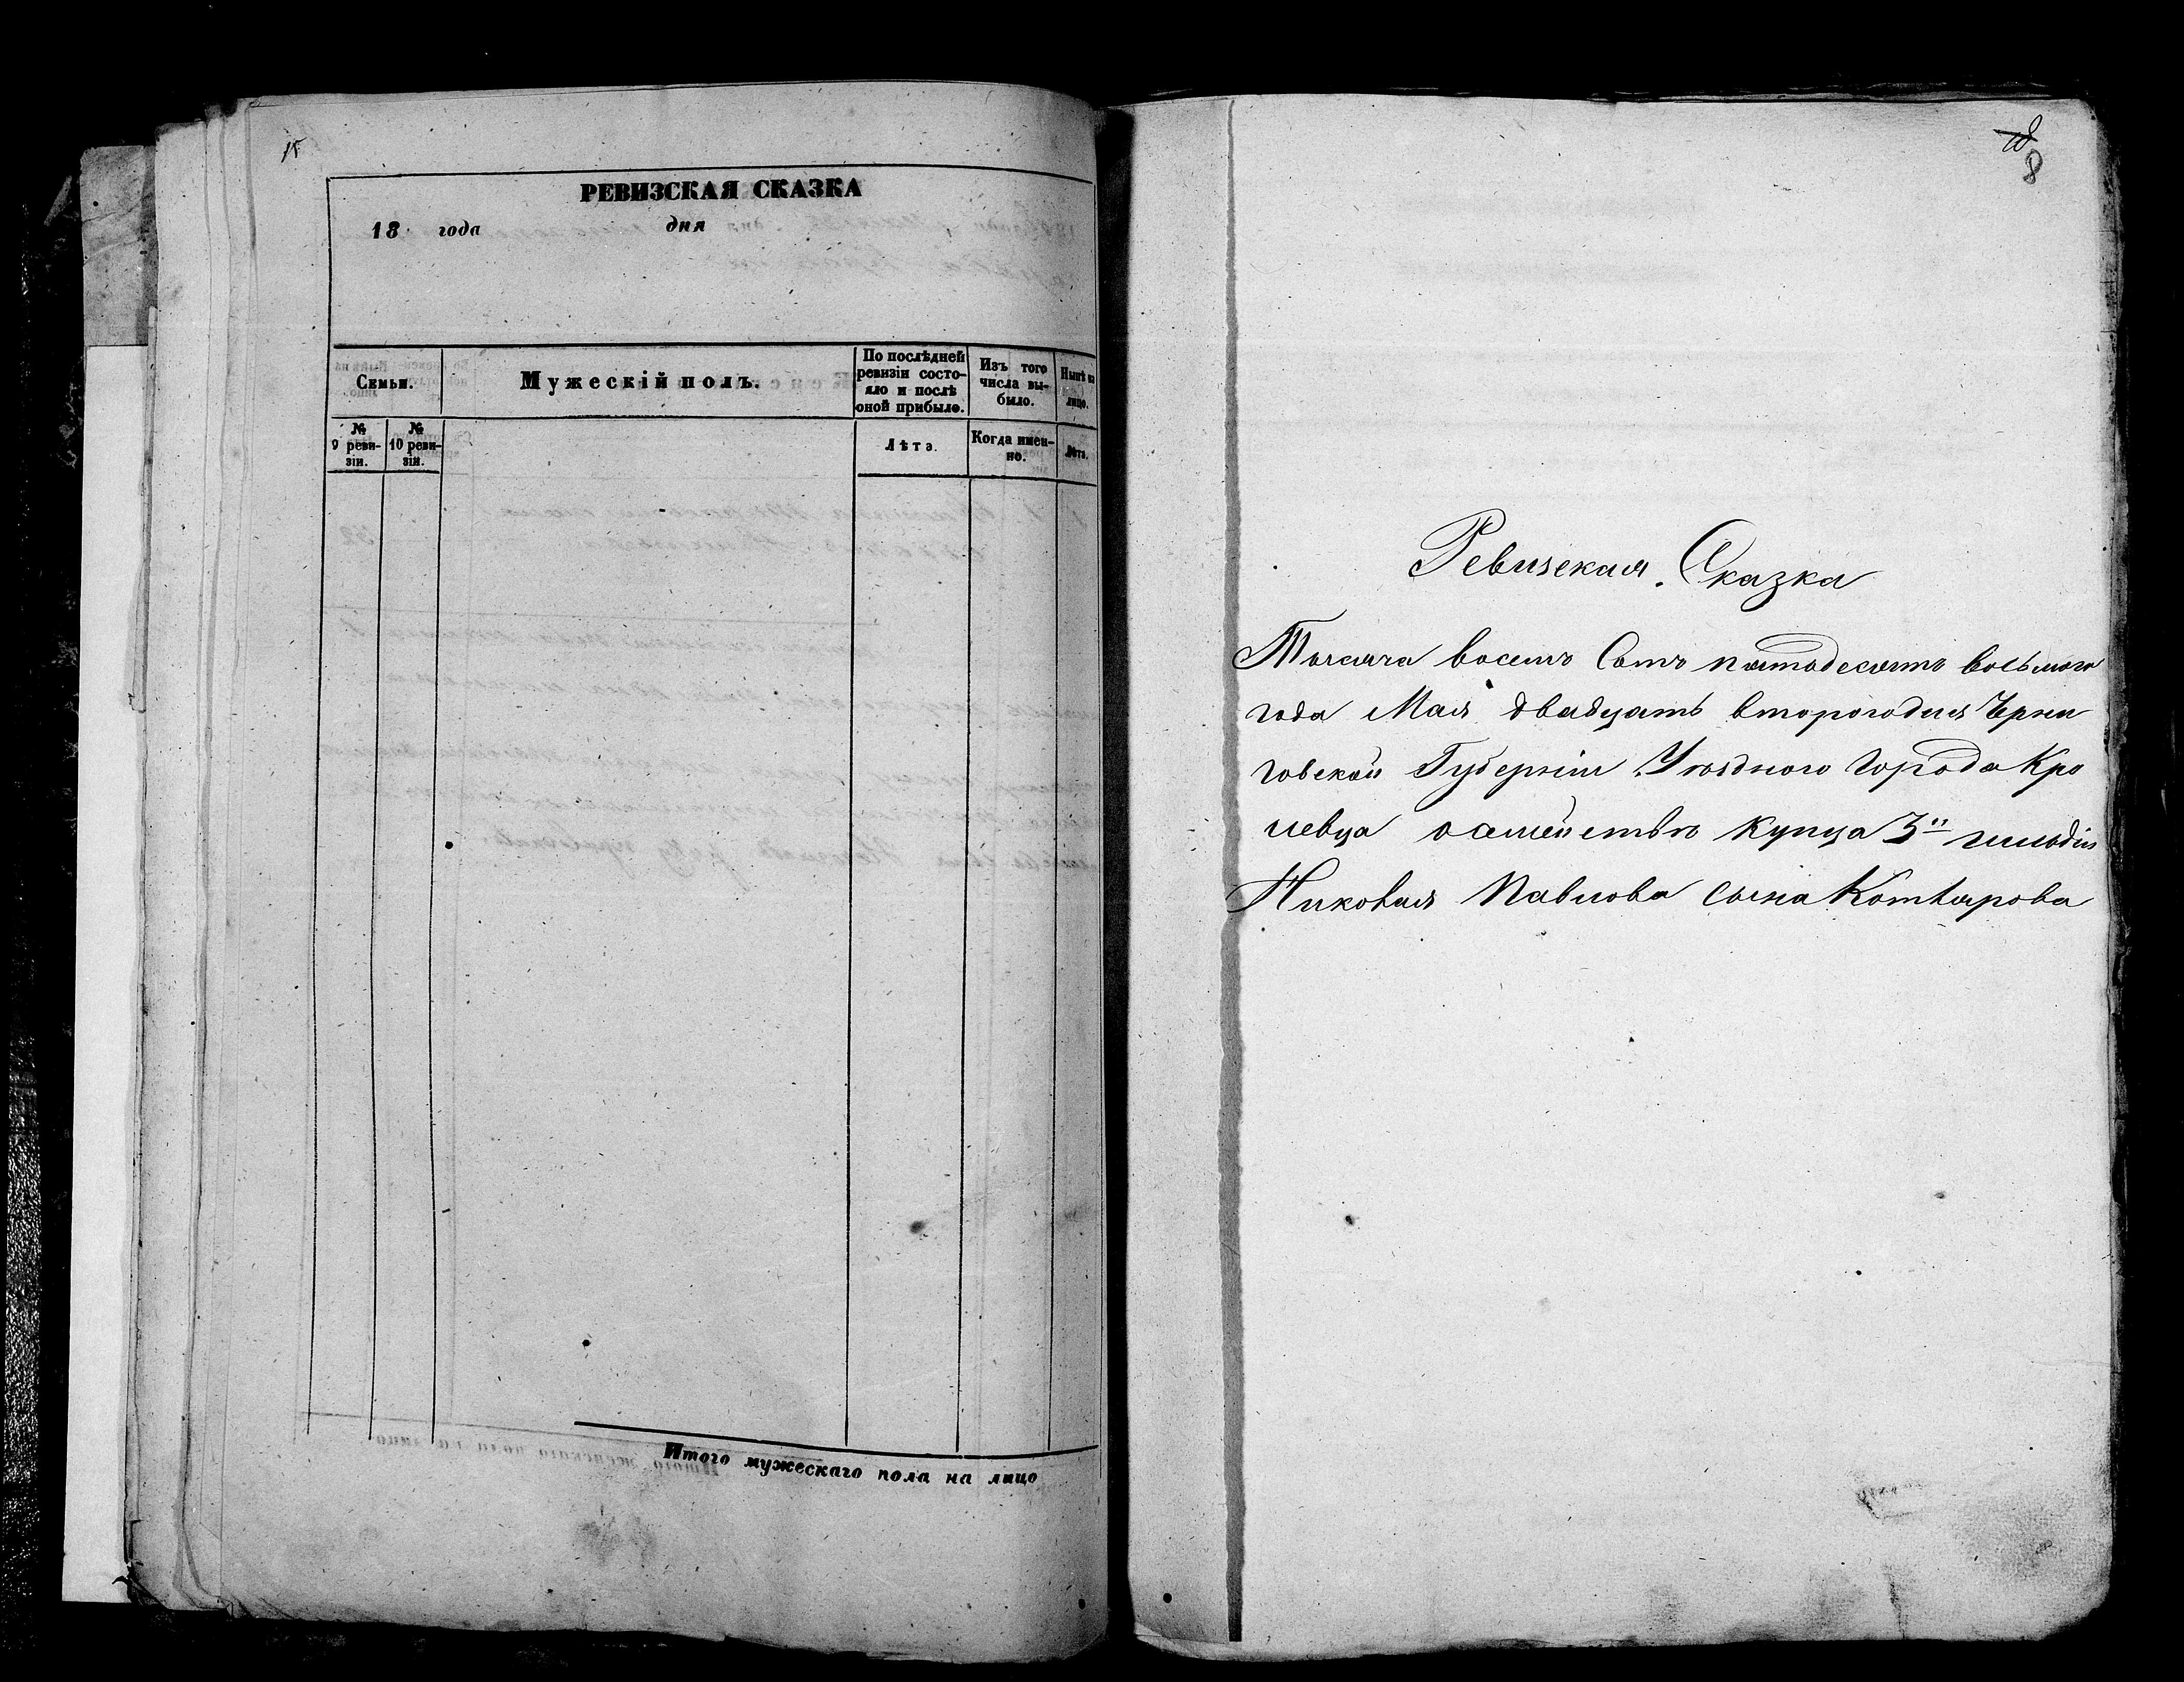 РЕВИЗСКАЯ СКАЗКА
18 года дня
Семьи.
Мужескій полъ.
По послѣдней ревизіи состояло и послѣ оной прибыло.
Изъ того числа выбыло.
Нынѣ на лицо.
№ 9 ревизіи.
№ 10 ревизіи.
Лѣта.
Когда именно.
Лѣта.
Итого мужескаго пола на лицо
8
Ревизская Сказка
Тысяча восемъ Сотъ пятодесятъ восьмого
года Мая двадцать второго дня Черни
говской Губерніи Уѣздного города Кро
левца осемействѣ купца 3й гильдіи
Николая Павлова сына Котлярова